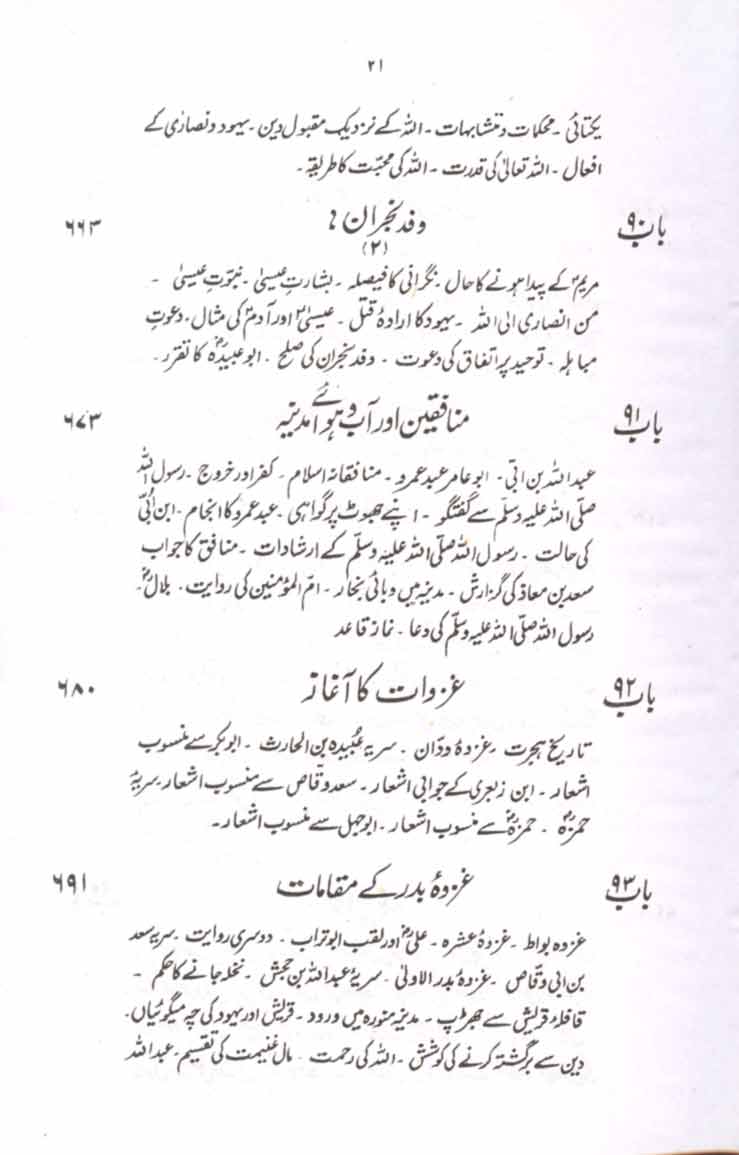 ۲۱
یکتائی ۔ محکمات و متشابہات ۔ اللہ کے نزدیک مقبول دین ۔ یہود و نصاریٰ کے
افعال ۔ اللہ تعالیٰ کی قدرت ۔ اللہ کی محبّت کا طریقہ ۔
باب ۹۰ وفد نجران : ۶۶۳
(۲)
مریمؑ کے پیدا ہونے کا حال ۔ نگرانی کا فیصلہ ۔ بشارتِ عیسیٰ ۔ نبوّتِ عیسیٰ ۔
من انصاری الی اللہ ۔ یہود کا ارادۂ قتل ۔ عیسیٰؑ اور آدمؑ کی مثال ۔ دعوتِ
مباہلہ ۔ توحید پر اتفاق کی دعوت ۔ وفد نجران کی صلح ۔ ابو عبیدہؓ کا تقرر ۔
باب ۹۱ منافقین اور آب و ہوائے مدینہ ۶۷۳
عبداللہ بن ابّی ۔ ابو عامر عبد عمرو ۔ منافقانہ اسلام ۔ کفر اور خروج ۔ رسول اللہ
صلّی اللہ علیہ وسلّم سے گفتگو ۔ اپنے جھوٹ پر گواہی ۔ عبد عمرو کا انجام ۔ ابن اُبیّ
کی حالت ۔ رسول اللہ صلّی اللہ علیہ وسلّم کے ارشادات ۔ منافق کا جواب
سعد بن معاذ کی گزارش ۔ مدینہ میں وبائی بخار ۔ امّ المؤمنین کی روایت ۔ بلالؓ ۔
رسول اللہ صلّی اللہ علیہ وسلّم کی دعا ۔ نماز قاعد
باب ۹۲ غزوات کا آغاز ۶۸۰
تاریخ ہجرت ۔ غزوۂ ودّان ۔ سریہ عُبیدہ بن الحارث ۔ ابوبکر سے منسوب
اشعار ۔ ابن زبعری کے جوابی اشعار ۔ سعد وقاص سے منسوب اشعار ۔ سریۂ
حمزہؓ ۔ حمزہؓ سے منسوب اشعار ۔ ابو جہل سے منسوب اشعار ۔
باب ۹۳ غزوۂ بدر کے مقامات ۶۹۱
غزوہ بواط ۔ غزوۂ عشرہ ۔ علیؓ اور لقب ابو تراب ۔ دوسری روایت ۔ سریہ سعد
بن ابی وقاص ۔ غزوۂ بدر الاولیٰ ۔ سریۂ عبداللہ بن جحش ۔ نخلہ جانے کا حکم ۔
قافلۂ قریش سے جھڑپ ۔ مدینہ منورہ میں ورود ۔ قریش اور یہود کی چہ میگوئیاں ۔
دین سے برگشتہ کرنے کی کوشش ۔ اللہ کی رحمت ۔ مال غنیمت کی تقسیم ۔ عبداللہ